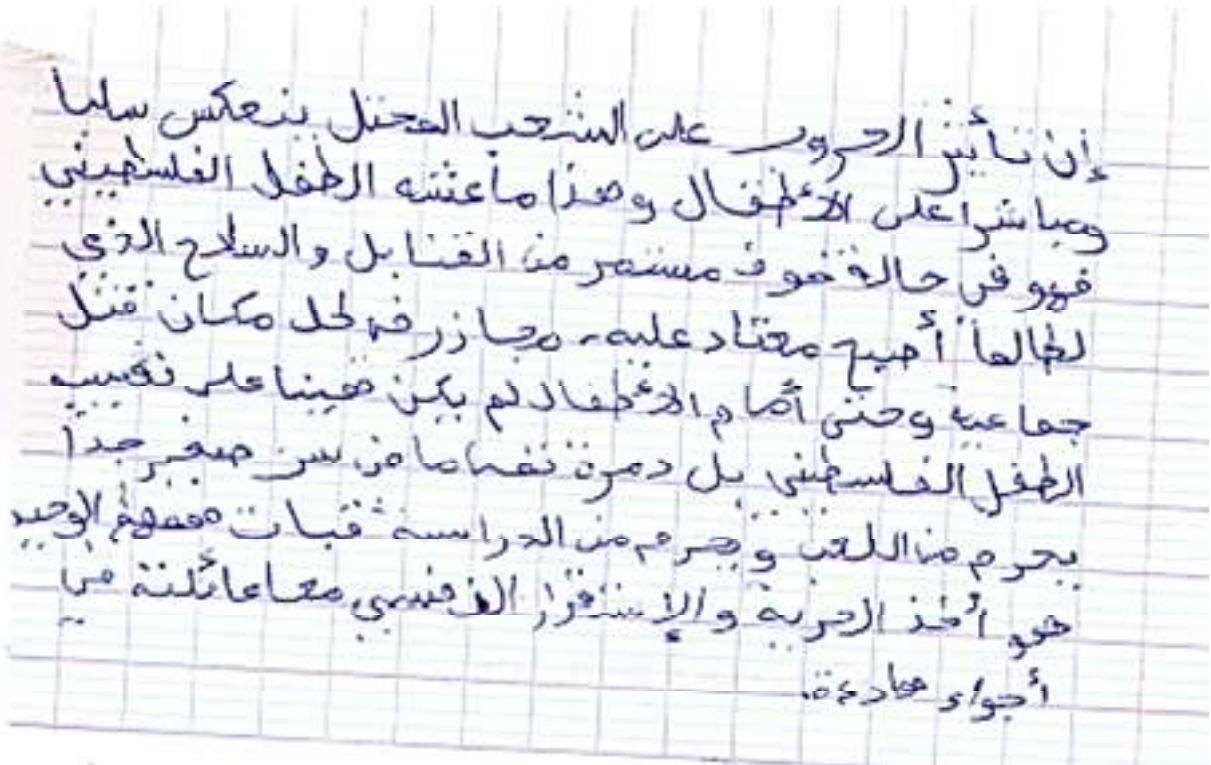 إن تأثير الحروب على الشعب المحتل ينعكس سلبا
ومباشرا على الأطفال وهذا ما عشه الطفل الفلسطيني
فهو في حالة خوف مستمر من القنابل والسلاح الذي
لطالما أصبح معتاد عليه، مجازر في كل مكان قتل
جماعية وحتى أمام الأطفال لم يكن هينا على نفسية
الطفل الفلسطيني بل دمرة تماما من سن صغير جدا
يحرم من اللعب ويحرم من الدراسة فبات همهم الوحيد
هو أخذ الحرية والإستقرار النفسي مع عائلته في
أجواء هادءة.